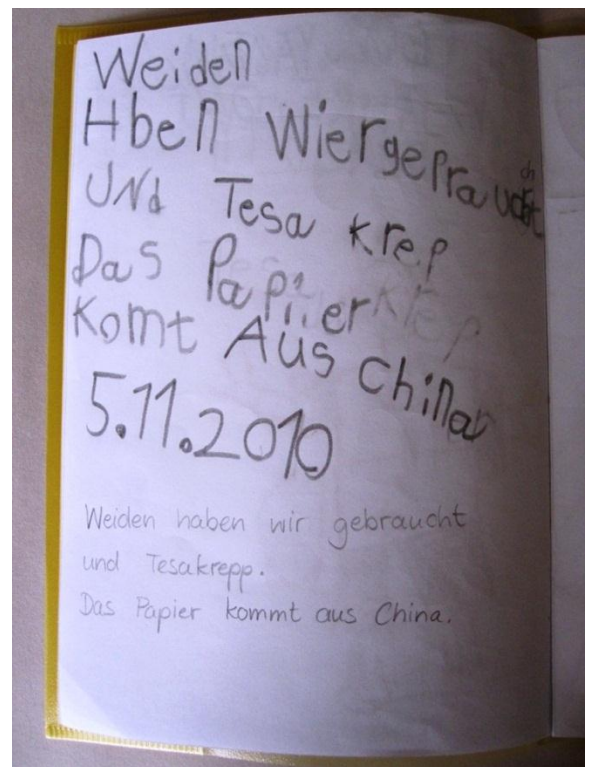 Weiden
Hben Wiergepraucht
UNd Tesa krep
Das Papiier
Komt Aus China
5.11.2010
Weiden haben wir gebraucht
und Tesakrepp.
Das Papier kommt aus China.